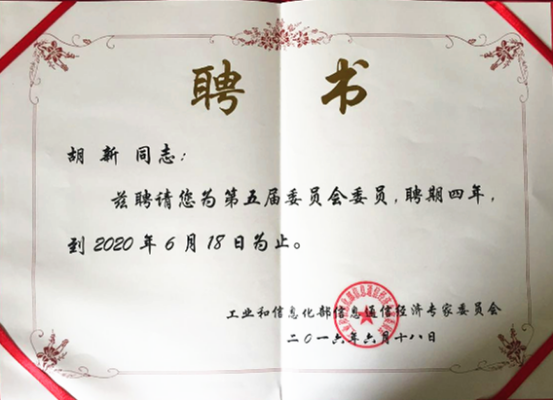 聘 书
胡 新 同志：
兹聘请您为第五届委员会委员，聘期四年，
到 2020 年 6 月 18 日为止。
工业和信息化部信息通信经济专家委员会
二〇一六年六月十八日